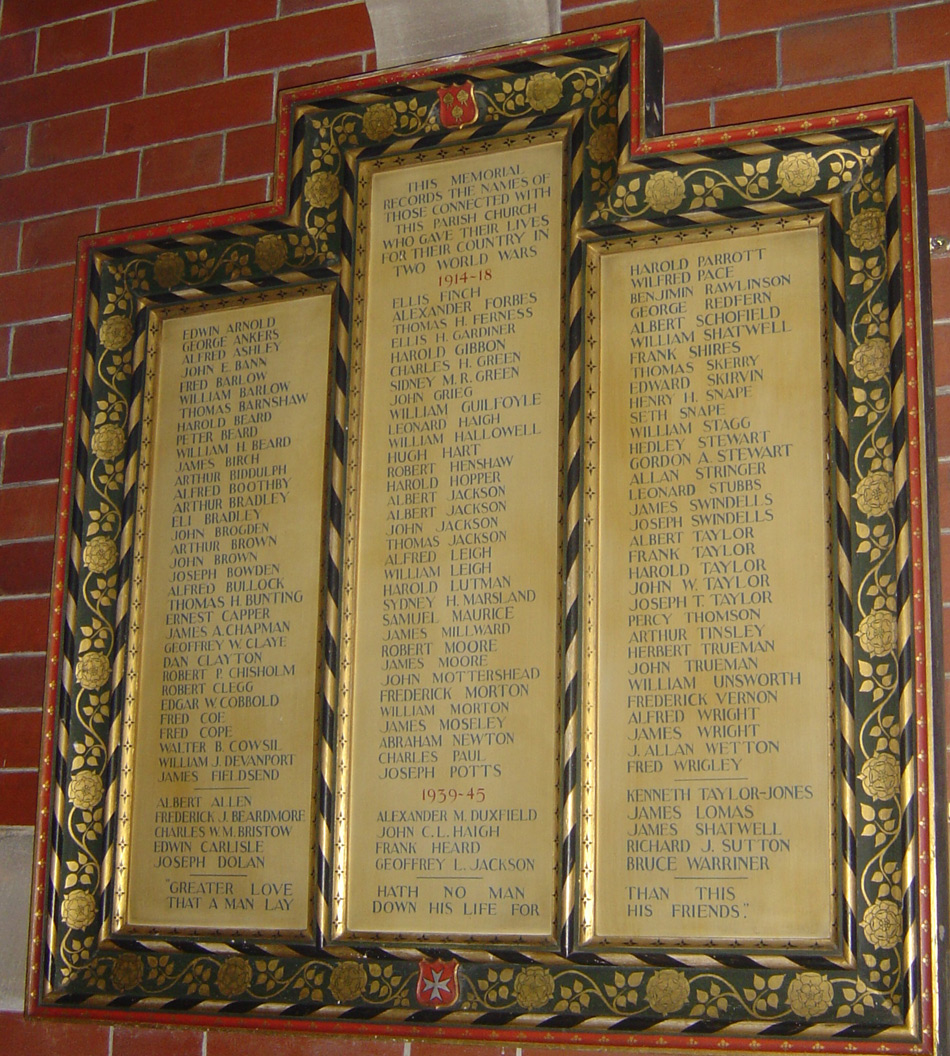 EDWIN ARNOLD
GEORGE ANKERS
ALFRED ASHLEY
JOHN E. BANN
FRED BARLOW
WILLIAM BARLOW
THOMAS BARNSHAW
HAROLD BEARD
PETER BEARD
WILLIAM H. BEARD
JAMES BIRCH
ARTHUR BIDDULPH
ALFRED BOOTHBY
ARTHUR BRADLEY
ELI BRADLEY
JOHN BROGDEN
ARTHUR BROWN
JOHN BROWN
JOSEPH BOWDEN
ALFRED BULLOCK
THOMAS H. BUNTING
ERNEST CAPPER
JAMES A. CHAPMAN
GEOFFREY W. CLAYE
DAN CLAYTON
ROBERT P. CHISHOLM
ROBERT CLEGG
EDGAR W. COBBOLD
FRED COE
FRED COPE
WALTER B. COWSIL
WILLIAM J. DEVANPORT
JAMES FIELDSEND
ALBERT ALLEN
FREDERICK J. BEARDMORE
CHARLES W.M. BRISTOW
EDWIN CARLISLE
JOSEPH DOLAN
"GREATER LOVE
THAT A MAN LAY
THIS MEMORIAL
RECORDS THE NAMES OF
THOSE CONNECTED WITH
THIS PARISH CHURCH
WHO GAVE THEIR LIVES
FOR THEIR COUNTRY IN
TWO WORLD WARS
1914-18
ELLIS FINCH
ALEXANDER FORBES
THOMAS H. FERNESS
ELLIS H. GARDINER
HAROLD GIBBON
CHARLES H. GREEN
SIDNEY M.R. GREEN
JOHN GRIEG
WILLIAM GUILFOYLE
LEONARD HAIGH
WILLIAM HALLOWELL
HUGH HART
ROBERT HENSHAW
HAROLD HOPPER
ALBERT JACKSON
ALBERT JACKSON
JOHN JACKSON
THOMAS JACKSON
ALFRED LEIGH
WILLIAM LEIGH
HAROLD LUTMAN
SYDNEY H. MARSLAND
SAMUEL MAURICE
JAMES MILLWARD
ROBERT MOORE
JAMES MOORE
JOHN MOTTERSHEAD
FREDERICK MORTON
WILLIAM MORTON
JAMES MOSELEY
ABRAHAM NEWTON
CHARLES PAUL
JOSEPH POTTS
1939-45
ALEXANDER M. DUXFIELD
JOHN C.L. HAIGH
FRANK HEARD
GEOFFREY L. JACKSON
HATH NO MAN
DOWN HIS LIFE FOR
HAROLD PARROTT
WILFRED PACE
BENJIMIN RAWLINSON
GEORGE REDFERN
ALBERT SCHOFIELD
WILLIAM SHATWELL
FRANK SHIRES
THOMAS SKERRY
EDWARD SKIRVIN
HENRY H. SNAPE
SETH SNAPE
WILLIAM STAGG
HEDLEY STEWART
GORDON A. STEWART
ALLAN STRINGER
LEONARD STUBBS
JAMES SWINDELLS
JOSEPH SWINDELLS
ALBERT TAYLOR
FRANK TAYLOR
HAROLD TAYLOR
JOHN W. TAYLOR
JOSEPH T. TAYLOR
PERCY THOMSON
ARTHUR TINSLEY
HERBERT TRUEMAN
JOHN TRUEMAN
WILLIAM UNSWORTH
FREDERICK VERNON
ALFRED WRIGHT
JAMES WRIGHT
J. ALLAN WETTON
FRED WRIGLEY
KENNETH TAYLOR-JONES
JAMES LOMAS
JAMES SHATWELL
RICHARD J. SUTTON
BRUCE WARRINER
THAN THIS
HIS FRIENDS."